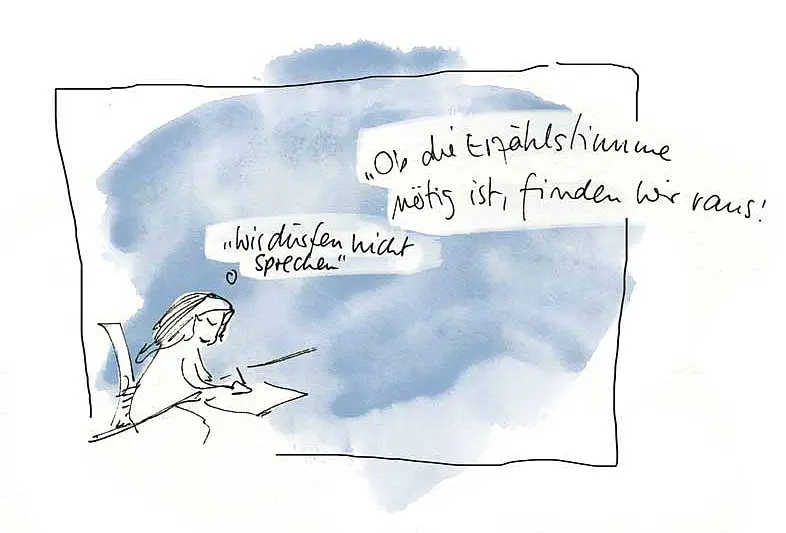 „Ob die Erzählstimme
nötig ist, finden wir raus!
„wir dürfen nicht
sprechen"